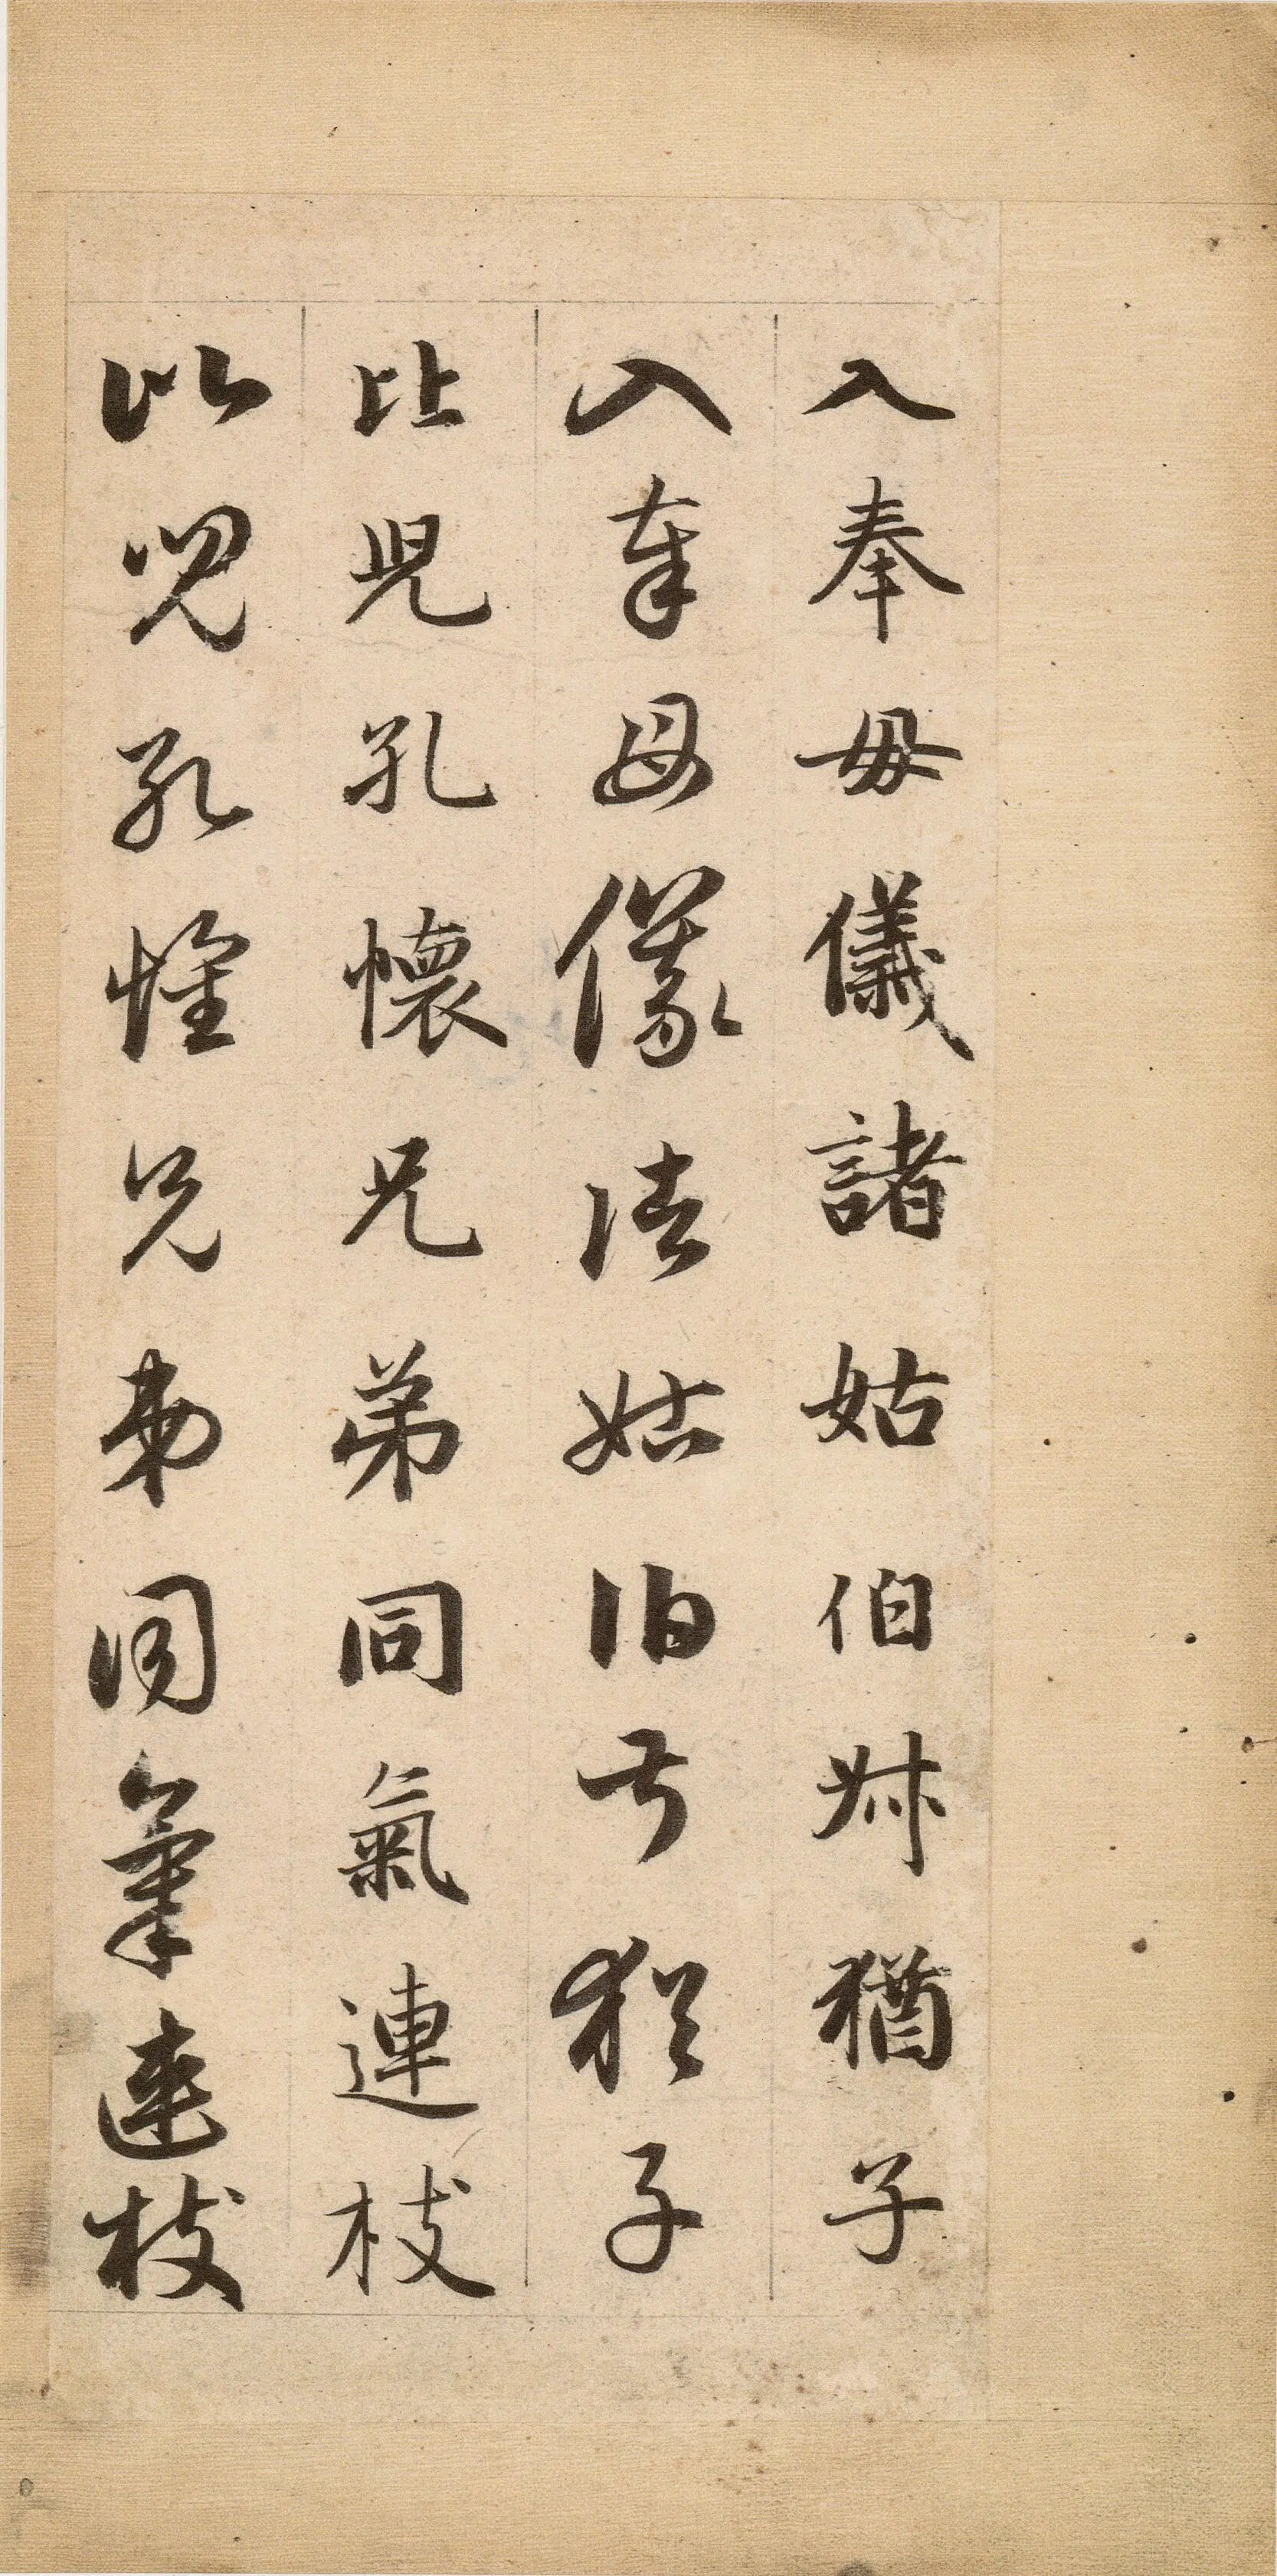 入奉母儀諸姑伯叔猶子
入奉母儀諸姑伯叔猶子
比兒孔懷兄弟同氣連枝
比兒孔懷兄弟同氣連枝